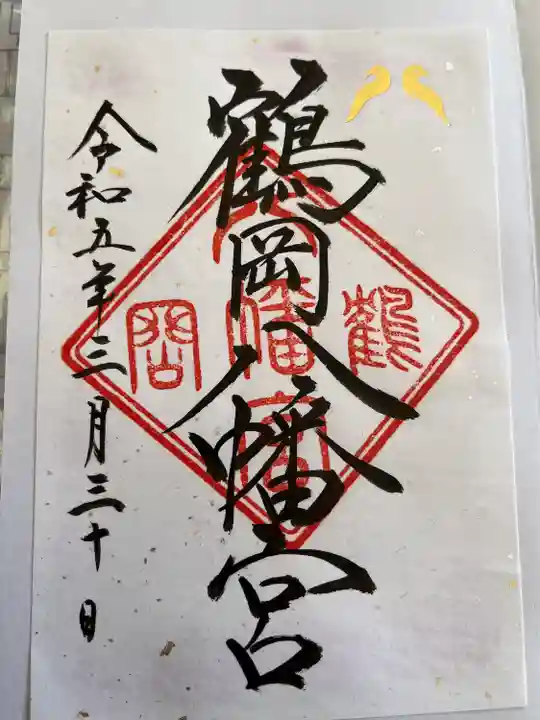 鶴岡八幡宮
鶴
八幡宮
岡
令和五年三月三十日